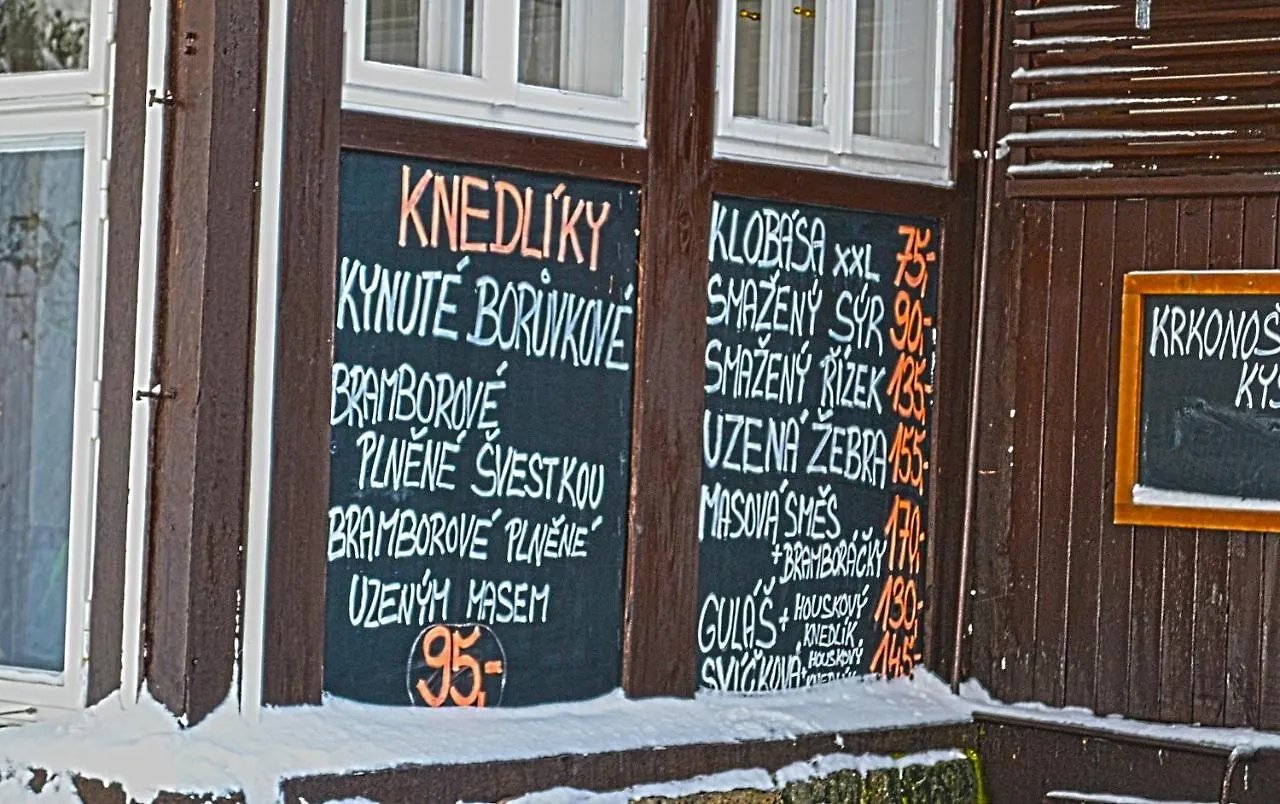 KNEDLÍKY
KYNUTÉ BORŮVKOVÉ
BRAMBOROVÉ
PLNĚNÉ ŠVESTKOU
BRAMBOROVÉ PLNĚNÉ
UZENÝM MASEM
95,-
KLOBÁSA XXL 75,-
SMAŽENÝ SÝR 90,-
SMAŽENÝ ŘÍZEK 135,-
UZENÁ ŽEBRA 155,-
MASOVÁ SMĚS
+ BRAMBORÁČKY 170,-
GULÁŠ + HOUSKOVÝ
KNEDLÍK 130,-
SVÍČKOVÁ + HOUSKOVÝ
KNEDLÍK 145,-
KRKONOŠ
KYS